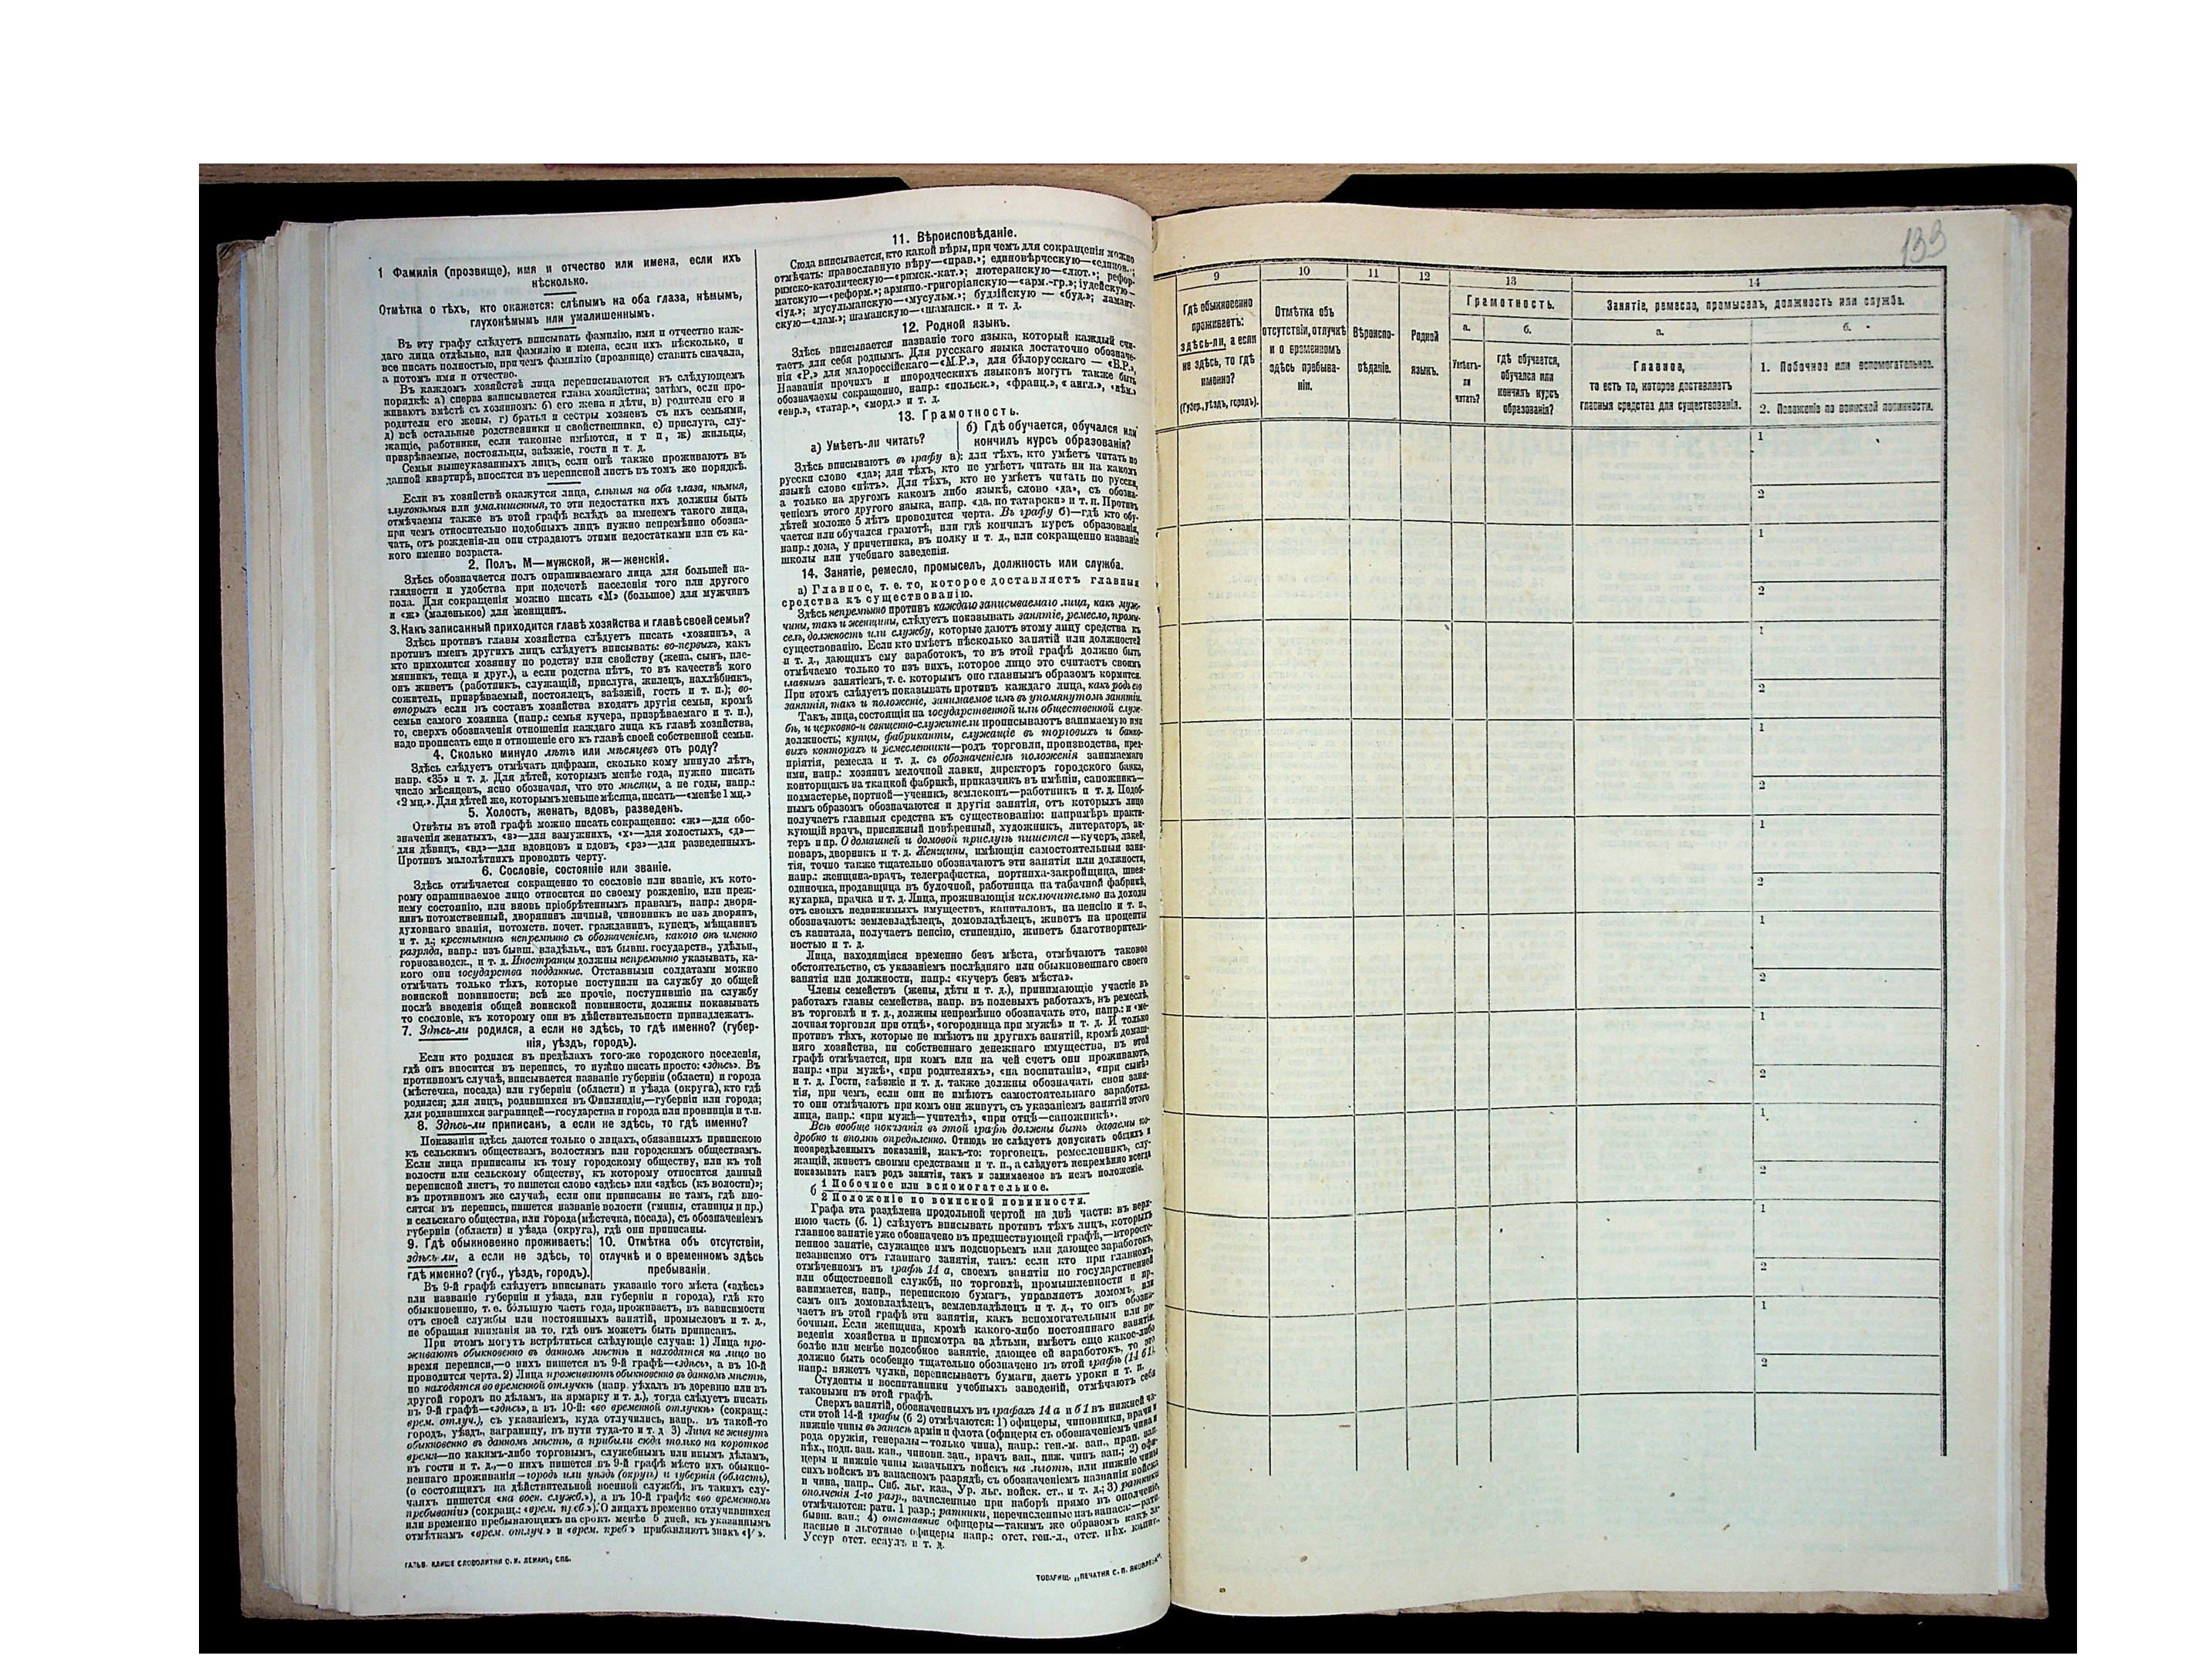 1 Фамилія (прозвище), имя и отчество или имена, если ихъ
нѣсколько.
Отмѣтка о тѣхъ, кто окажется: слѣпымъ на оба глаза, нѣмымъ,
глухонѣмымъ или умалишеннымъ.
Въ эту графу слѣдуетъ вписывать фамилію, имя и отчество каж-
даго лица отдѣльно, или фамилію и имена, если ихъ нѣсколько, и
все писать полностью, при чемъ фамилію (прозвище) ставить сначала,
а потомъ имя и отчество.
Въ каждомъ хозяйствѣ лица переписываются въ слѣдующемъ
порядкѣ: а) сперва записывается глава хозяйства; затѣмъ, если про-
живаютъ вмѣстѣ съ хозяиномъ: б) его жена и дѣти, в) родители его и
родители его жены, г) братья и сестры хозяевъ съ ихъ семьями,
д) всѣ остальные родственники и свойственники, е) прислуга, слу-
жащіе, работники, если таковые имѣются, и т п, ж) жильцы,
призрѣваемые, постояльцы, заѣзжіе, гости и т. д.
Семьи вышеуказанныхъ лицъ, если онѣ также проживаютъ въ
данной квартирѣ, вносятся въ переписной листъ въ томъ же порядкѣ.
Если въ хозяйствѣ окажутся лица, слѣпыя на оба глаза, нѣмыя,
глухонѣмыя или умалишенныя, то эти недостатки ихъ должны быть
отмѣчаемы также въ этой графѣ вслѣдъ за именемъ такого лица,
при чемъ относительно подобныхъ лицъ нужно непремѣнно обозна-
чать, отъ рожденія-ли они страдаютъ этими недостатками или съ ка-
кого именно возраста.
2. Полъ, М—мужской, ж—женскій.
Здѣсь обозначается полъ опрашиваемаго лица для большей на-
глядности и удобства при подсчетѣ населенія того или другого
пола. Для сокращенія можно писать «М» (большое) для мужчинъ
и «ж» (маленькое) для женщинъ.
3. Какъ записанный приходится главѣ хозяйства и главѣ своей семьи?
Здѣсь противъ главы хозяйства слѣдуетъ писать «хозяинъ», а
противъ именъ другихъ лицъ слѣдуетъ вписывать: во-первыхъ, какъ
кто приходится хозяину по родству или свойству (жена, сынъ, пле-
мянникъ, теща и друг.), а если родства нѣтъ, то въ качествѣ кого
онъ живетъ (работникъ, служащій, прислуга, жилецъ, нахлѣбникъ,
сожитель, призрѣваемый, постоялецъ, заѣзжій, гость и т. п.); во-
вторыхъ если въ составъ хозяйства входятъ другія семьи, кромѣ
семьи самого хозяина (напр.: семья кучера, призрѣваемаго и т. п.),
то, сверхъ обозначенія отношенія каждаго лица къ главѣ хозяйства,
надо прописать еще и отношеніе его къ главѣ своей собственной семьи.
4. Сколько минуло лѣтъ или мѣсяцевъ отъ роду?
Здѣсь слѣдуетъ отмѣчать цифрами, сколько кому минуло лѣтъ,
напр. «35» и т. д. Для дѣтей, которымъ менѣе года, нужно писать
число мѣсяцевъ, ясно обозначая, что это мѣсяцы, а не годы, напр.:
«2 мц.». Для дѣтей же, которымъ меньше мѣсяца, писать—«менѣе 1 мц.»
5. Холостъ, женатъ, вдовъ, разведенъ.
Отвѣты въ этой графѣ можно писать сокращенно: «ж»—для обо-
значенія женатыхъ, «з»—для замужнихъ, «х»—для холостыхъ, «д»—
для дѣвицъ, «вд»—для вдовцовъ и вдовъ, «рз»—для разведенныхъ.
Противъ малолѣтнихъ проводить черту.
6. Сословіе, состояніе или званіе.
Здѣсь отмѣчается сокращенно то сословіе или званіе, къ кото-
рому опрашиваемое лицо относится по своему рожденію, или преж-
нему состоянію, или вновь пріобрѣтеннымъ правамъ, напр.: дворя-
нинъ потомственный, дворянинъ личный, чиновникъ не изъ дворянъ,
духовнаго званія, потомств. почет. гражданинъ, купецъ, мѣщанинъ
и т. д.; крестьянинъ непремѣнно съ обозначеніемъ, какого онъ именно
разряда, напр.: изъ бывш. владѣльч., изъ бывш. государств., удѣльн.,
горнозаводск., и т. д. Иностранцы должны непремѣнно указывать, ка-
кого они государства подданные. Отставными солдатами можно
отмѣчать только тѣхъ, которые поступили на службу до общей
воинской повинности; всѣ же прочіе, поступившіе на службу
послѣ введенія общей воинской повинности, должны показывать
то сословіе, къ которому они въ дѣйствительности принадлежатъ.
7. Здѣсь-ли родился, а если не здѣсь, то гдѣ именно? (губер-
нія, уѣздъ, городъ).
Если кто родился въ предѣлахъ того-же городского поселенія,
гдѣ онъ вносится въ перепись, то нужно писать просто: «здѣсь». Въ
противномъ случаѣ, вписывается названіе губерніи (области) и города
(мѣстечка, посада) или губерніи (области) и уѣзда (округа), кто гдѣ
родился; для лицъ, родившихся въ Финляндіи,—губерніи или города;
для родившихся заграницей—государства и города или провинціи и т.п.
8. Здѣсь-ли приписанъ, а если не здѣсь, то гдѣ именно?
Показанія здѣсь даются только о лицахъ, обязанныхъ припискою
къ сельскимъ обществамъ, волостямъ или городскимъ обществамъ.
Если лица приписаны къ тому городскому обществу, или къ той
волости или сельскому обществу, къ которому относится данный
переписной листъ, то пишется слово «здѣсь» или «здѣсь (къ волости)»;
въ противномъ же случаѣ, если они приписаны не тамъ, гдѣ вно-
сятся въ перепись, пишется названіе волости (гмины, станицы и пр.)
и сельскаго общества, или города (мѣстечка, посада), съ обозначеніемъ
губерніи (области) и уѣзда (округа), гдѣ они приписаны.
9. Гдѣ обыкновенно проживаетъ:
здѣсь-ли, а если не здѣсь, то
гдѣ именно? (губ., уѣздъ, городъ).
10. Отмѣтка объ отсутствіи,
отлучкѣ и о временномъ здѣсь
пребываніи.
Въ 9-й графѣ слѣдуетъ вписывать указаніе того мѣста («здѣсь»
или названіе губерніи и уѣзда, или губерніи и города), гдѣ кто
обыкновенно, т. е. бóльшую часть года, проживаетъ, въ зависимости
отъ своей службы или постоянныхъ занятій, промысловъ и т. д.,
не обращая вниманія на то, гдѣ онъ можетъ быть приписанъ.
При этомъ могутъ встрѣтиться слѣдующіе случаи: 1) Лица про-
живаютъ обыкновенно въ данномъ мѣстѣ и находятся на лицо во
время переписи,—о нихъ пишется въ 9-й графѣ—«здѣсь», а въ 10-й
проводится черта. 2) Лица проживаютъ обыкновенно въ данномъ мѣстѣ,
но находятся во временной отлучкѣ (напр. уѣхалъ въ деревню или въ
другой городъ по дѣламъ, на ярмарку и т. д.), тогда слѣдуетъ писать
въ 9-й графѣ—«здѣсь», а въ 10-й: «во временной отлучкѣ» (сокращ.:
врем. отлуч.), съ указаніемъ, куда отлучились, напр.. въ такой-то
городъ, уѣздъ, заграницу, въ пути туда-то и т. д 3) Лица не живутъ
обыкновенно въ данномъ мѣстѣ, а прибыли сюда только на короткое
время—по какимъ-либо торговымъ, служебнымъ или инымъ дѣламъ,
въ гости и т. д.,—о нихъ пишется въ 9-й графѣ мѣсто ихъ обыкно-
веннаго проживанія—городъ или уѣздъ (округъ) и губернія (область),
(о состоящихъ на дѣйствительной военной службѣ, въ такихъ слу-
чаяхъ пишется «на воен. службѣ»), а въ 10-й графѣ: «во временномъ
пребываніи» (сокращ.: «врем. преб.»). О лицахъ временно отлучившихся
или временно пребывающихъ на срокъ менѣе 5 дней, къ указаннымъ
отмѣткамъ «врем. отлуч.» и «врем. преб» прибавляютъ знакъ «V».
ГАЛЬВ. КЛИШЕ СЛОВОЛИТНИ О. И. ЛЕМАНЪ, СПБ.
11. Вѣроисповѣданіе.
Сюда вписывается, кто какой вѣры, при чемъ для сокращенія можно
отмѣчать: православную вѣру—«прав.»; единовѣрческую—«единов.»;
римско-католическую—«римск.-кат.»; лютеранскую—«лют.»; рефор-
матскую—«реформ.»; армяно-григоріанскую—«арм.-гр.»; іудейскую—
«іуд.»; мусульманскую—«мусульм.»; буддійскую — «буд.»; ламаит-
скую—«лам.»; шаманскую—«шаманск.» и т. д.
12. Родной языкъ.
Здѣсь вписывается названіе того языка, который каждый счи-
таетъ для себя роднымъ. Для русскаго языка достаточно обозначе-
нія «Р.» для малороссійскаго «М.Р.», для бѣлорусскаго — «Б.Р.»,
Названія прочихъ и инородческихъ языковъ могутъ также быть
обозначаемы сокращенно, напр.: «польск.», «франц.», « англ.», «нѣм.»
«евр.», «татар.», «морд.» и т. д.
13. Грамотность.
а) Умѣетъ-ли читать?
б) Гдѣ обучается, обучался или
кончилъ курсъ образованія?
Здѣсь вписываютъ въ графу а): для тѣхъ, кто умѣетъ читать по
русски слово «да»; для тѣхъ, кто не умѣетъ читать ни на какомъ
языкѣ слово «нѣтъ». Для тѣхъ, кто не умѣетъ читать по русски,
а только на другомъ какомъ либо языкѣ, слово «да», съ обозна-
ченіемъ этого другого языка, напр. «да, по татарски» и т. п. Противъ
дѣтей моложе 5 лѣтъ проводится черта. Въ графу б)—гдѣ кто обу-
чается или обучался грамотѣ, или гдѣ кончилъ курсъ образованія,
напр.: дома, у причетника, въ полку и т. д., или сокращенно названіе
школы или учебнаго заведенія.
14. Занятіе, ремесло, промыселъ, должность или служба.
а) Главное, т. е. то, которое доставляетъ главныя
средства къ существованію.
Здѣсь непремѣнно противъ каждаго записываемаго лица, какъ муж-
чины, такъ и женщины, слѣдуетъ показывать занятіе, ремесло, промы-
селъ, должность или службу, которые даютъ этому лицу средства къ
существованію. Если кто имѣетъ нѣсколько занятій или должностей
и т. д., дающихъ ему заработокъ, то въ этой графѣ должно быть
отмѣчаемо только то изъ нихъ, которое лицо это считаетъ своимъ
главнымъ занятіемъ, т. е. которымъ оно главнымъ образомъ кормится.
При этомъ слѣдуетъ показывать противъ каждаго лица, какъ родъ его
занятія, такъ и положеніе, занимаемое имъ въ упомянутомъ занятіи.
Такъ, лица, состоящія на государственной или общественной служ-
бѣ, и церковно-и священно-служители прописываютъ занимаемую ими
должность; купцы, фабриканты, служащіе въ торговыхъ и банко-
выхъ конторахъ и ремесленники—родъ торговли, производства, пред-
пріятія, ремесла и т. д. съ обозначеніемъ положенія занимаемаго
ими, напр.: хозяинъ мелочной лавки, директоръ городского банка,
конторщикъ на ткацкой фабрикѣ, приказчикъ въ имѣніи, сапожникъ—
подмастерье, портной—ученикъ, землекопъ—работникъ и т. д. Подоб-
нымъ образомъ обозначаются и другія занятія, отъ которыхъ лицо
получаетъ главныя средства къ существованію: напримѣръ практи-
кующій врачъ, присяжный повѣренный, художникъ, литераторъ, ак-
теръ и пр. О домашней и домовой прислугѣ пишется—кучеръ, лакей,
поваръ, дворникъ и т. д. Женщины, имѣющія самостоятельныя заня-
тія, точно также тщательно обозначаютъ эти занятія или должности,
напр.: женщина-врачъ, телеграфистка, портниха-закройщица, швея-
одиночка, продавщица въ булочной, работница на табачной фабрикѣ,
кухарка, прачка и т. д. Лица, проживающія исключительно на доходы
отъ своихъ недвижимыхъ имуществъ, капиталовъ, на пенсію и т. п.,
обозначаютъ: землевладѣлецъ, домовладѣлецъ, живетъ на проценты
съ капитала, получаетъ пенсію, стипендію, живетъ благотворитель-
ностью и т. д.
Лица, находящіяся временно безъ мѣста, отмѣчаютъ таковое
обстоятельство, съ указаніемъ послѣдняго или обыкновеннаго своего
занятія или должности, напр.: «кучеръ безъ мѣста».
Члены семействъ (жены, дѣти и т. д.), принимающіе участіе въ
работахъ главы семейства, напр. въ полевыхъ работахъ, въ ремеслѣ,
въ торговлѣ и т. д., должны непремѣнно обозначать это, напр.: и «ме-
лочная торговля при отцѣ», «огородница при мужѣ» и т. д. И только
противъ тѣхъ, которые не имѣютъ ни другихъ занятій, кромѣ домаш-
няго хозяйства, ни собственнаго денежнаго имущества, въ этой
графѣ отмѣчается, при комъ или на чей счетъ они проживаютъ,
напр.: «при мужѣ», «при родителяхъ», «на воспитаніи», «при сынѣ»
и т. д. Гости, заѣзжіе и т. д. также должны обозначать свои заня-
тія, при чемъ, если они не имѣютъ самостоятельнаго заработка,
то они отмѣчаютъ при комъ они живутъ, съ указаніемъ занятій этого
лица, напр.: «при мужѣ—учителѣ», «при отцѣ—сапожникѣ».
Всѣ вообще показанія въ этой графѣ должны быть даваемы по-
дробно и вполнѣ опредѣленно. Отнюдь не слѣдуетъ допускать общихъ и
неопредѣленныхъ показаній, какъ-то: торговецъ, ремесленникъ, слу-
жащій, живетъ своими средствами и т. п., а слѣдуетъ непремѣнно всегда
показывать какъ родъ занятія, такъ и занимаемое въ немъ положеніе.
б 1 Побочное или вспомогательное.
2 Положеніе по воинской повинности.
Графа эта раздѣлена продольной чертой на двѣ части: въ верх-
нюю часть (б. 1) слѣдуетъ вписывать противъ тѣхъ лицъ, которыхъ
главное занятіе уже обозначено въ предшествующей графѣ,—второсте-
пенное занятіе, служащее имъ подспорьемъ или дающее заработокъ,
независимо отъ главнаго занятія, такъ: если кто при главномъ,
отмѣченномъ въ графѣ 14 а, своемъ занятіи по государственной
или общественной службѣ, по торговлѣ, промышленности и пр.
занимается, напр., перепискою бумагъ, управляетъ домомъ, или
самъ онъ домовладѣлецъ, землевладѣлецъ и т. д., то онъ обозна-
чаетъ въ этой графѣ эти занятія, какъ вспомогательныя или по-
бочныя. Если женщина, кромѣ какого-либо постояннаго занятія,
веденія хозяйства и присмотра за дѣтьми, имѣетъ еще какое-либо
болѣе или менѣе подсобное занятіе, дающее ей заработокъ, то это
должно быть особенно тщательно обозначено въ этой графѣ (14 б1),
напр.: вяжетъ чулки, переписываетъ бумаги, даетъ уроки и т. п.
Студенты и воспитанники учебныхъ заведеній, отмѣчаютъ себя
таковыми въ этой графѣ.
Сверхъ занятій, обозначенныхъ въ графахъ 14 а и б1 въ нижней ча-
сти этой 14-й графы (б 2) отмѣчаются: 1) офицеры, чиновники, врачи и
нижніе чины въ запасѣ арміи и флота (офицеры съ обозначеніемъ чина и
рода оружія, генералы—только чина), напр.: ген.-м. зап., прап. зап.
пѣх., подп. зап. кав., чиновн. зап., врачъ зап., ниж. чинъ зап.; 2) офи-
церы и нижніе чины казачьихъ войскъ на льготѣ, или нижніе чины
сихъ войскъ въ запасномъ разрядѣ, съ обозначеніемъ названія войска
и чина, напр., Сиб. льг. каз., Ур. льг. войск. ст.. и т. д.; 3) ратники
ополченія 1-го разр., зачисленные при наборѣ прямо въ ополченіе,
отмѣчаются: ратн. 1 разр.; ратники, перечисленные изъ запаса:—ратн.
бывш. зап.; 4) отставные офицеры—такимъ же образомъ какъ за-
пасные и льготные офицеры напр.: отст. ген.-л., отст. пѣх. капит.,
Уссур отст. есаулъ и т. д.
ТОВАРИЩ. „ПЕЧАТНЯ С. П. ЯКОВЛЕВА“.
133
9 10 11 12 13 14
Гдѣ обыкновенно
проживаетъ:
здѣсь-ли, а если
не здѣсь, то гдѣ
именно?
(Губер., уѣздъ, городъ).
Отмѣтка объ
отсутствіи, отлучкѣ
и о временномъ
здѣсь пребыва-
ніи.
Вѣроиспо-
вѣданіе.
Родной
языкъ.
Грамотность.
а.
Умѣетъ-
ли
читать?
б.
гдѣ обучается,
обучался или
кончилъ курсъ
образованія?
Занятіе, ремесло, промыселъ, должность или служба.
а.
Главное,
то есть то, которое доставляетъ
главныя средства для существованія.
б.
1. Побочное или вспомогательное.
2. Положеніе по воинской повинности.
1
2
1
2
1
2
1
2
1
2
1
2
1
2
1
2
1
2
1
2